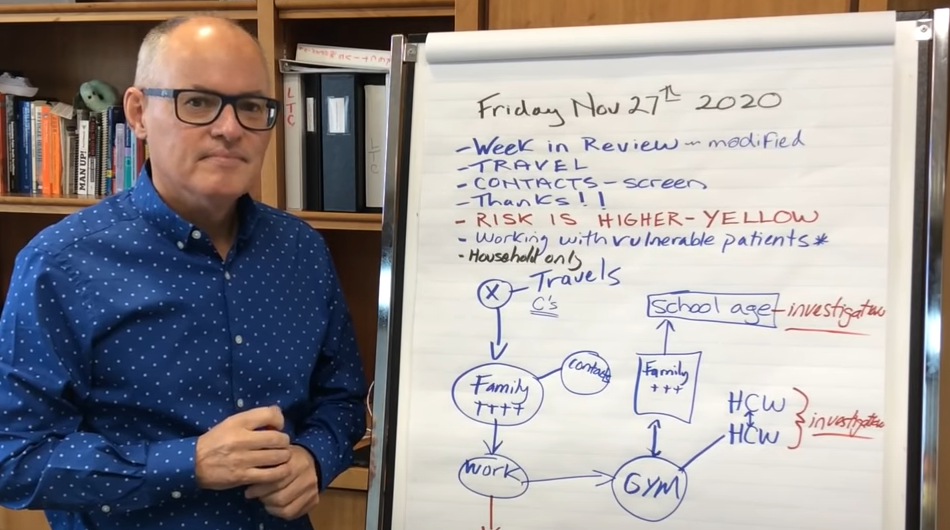 Friday Nov 27th 2020
- Week in Review - modified
- TRAVEL
- CONTACTS - screen
- Thanks!!
- RISK IS HIGHER - YELLOW
- Working with vulnerable patients*
- Household only
X - Travels
C's
School age - investigation
Family
++++
contacts
Family
+++
HCW
HCW
investigation
Work
GYM
LTC
LTC
MAN UP!